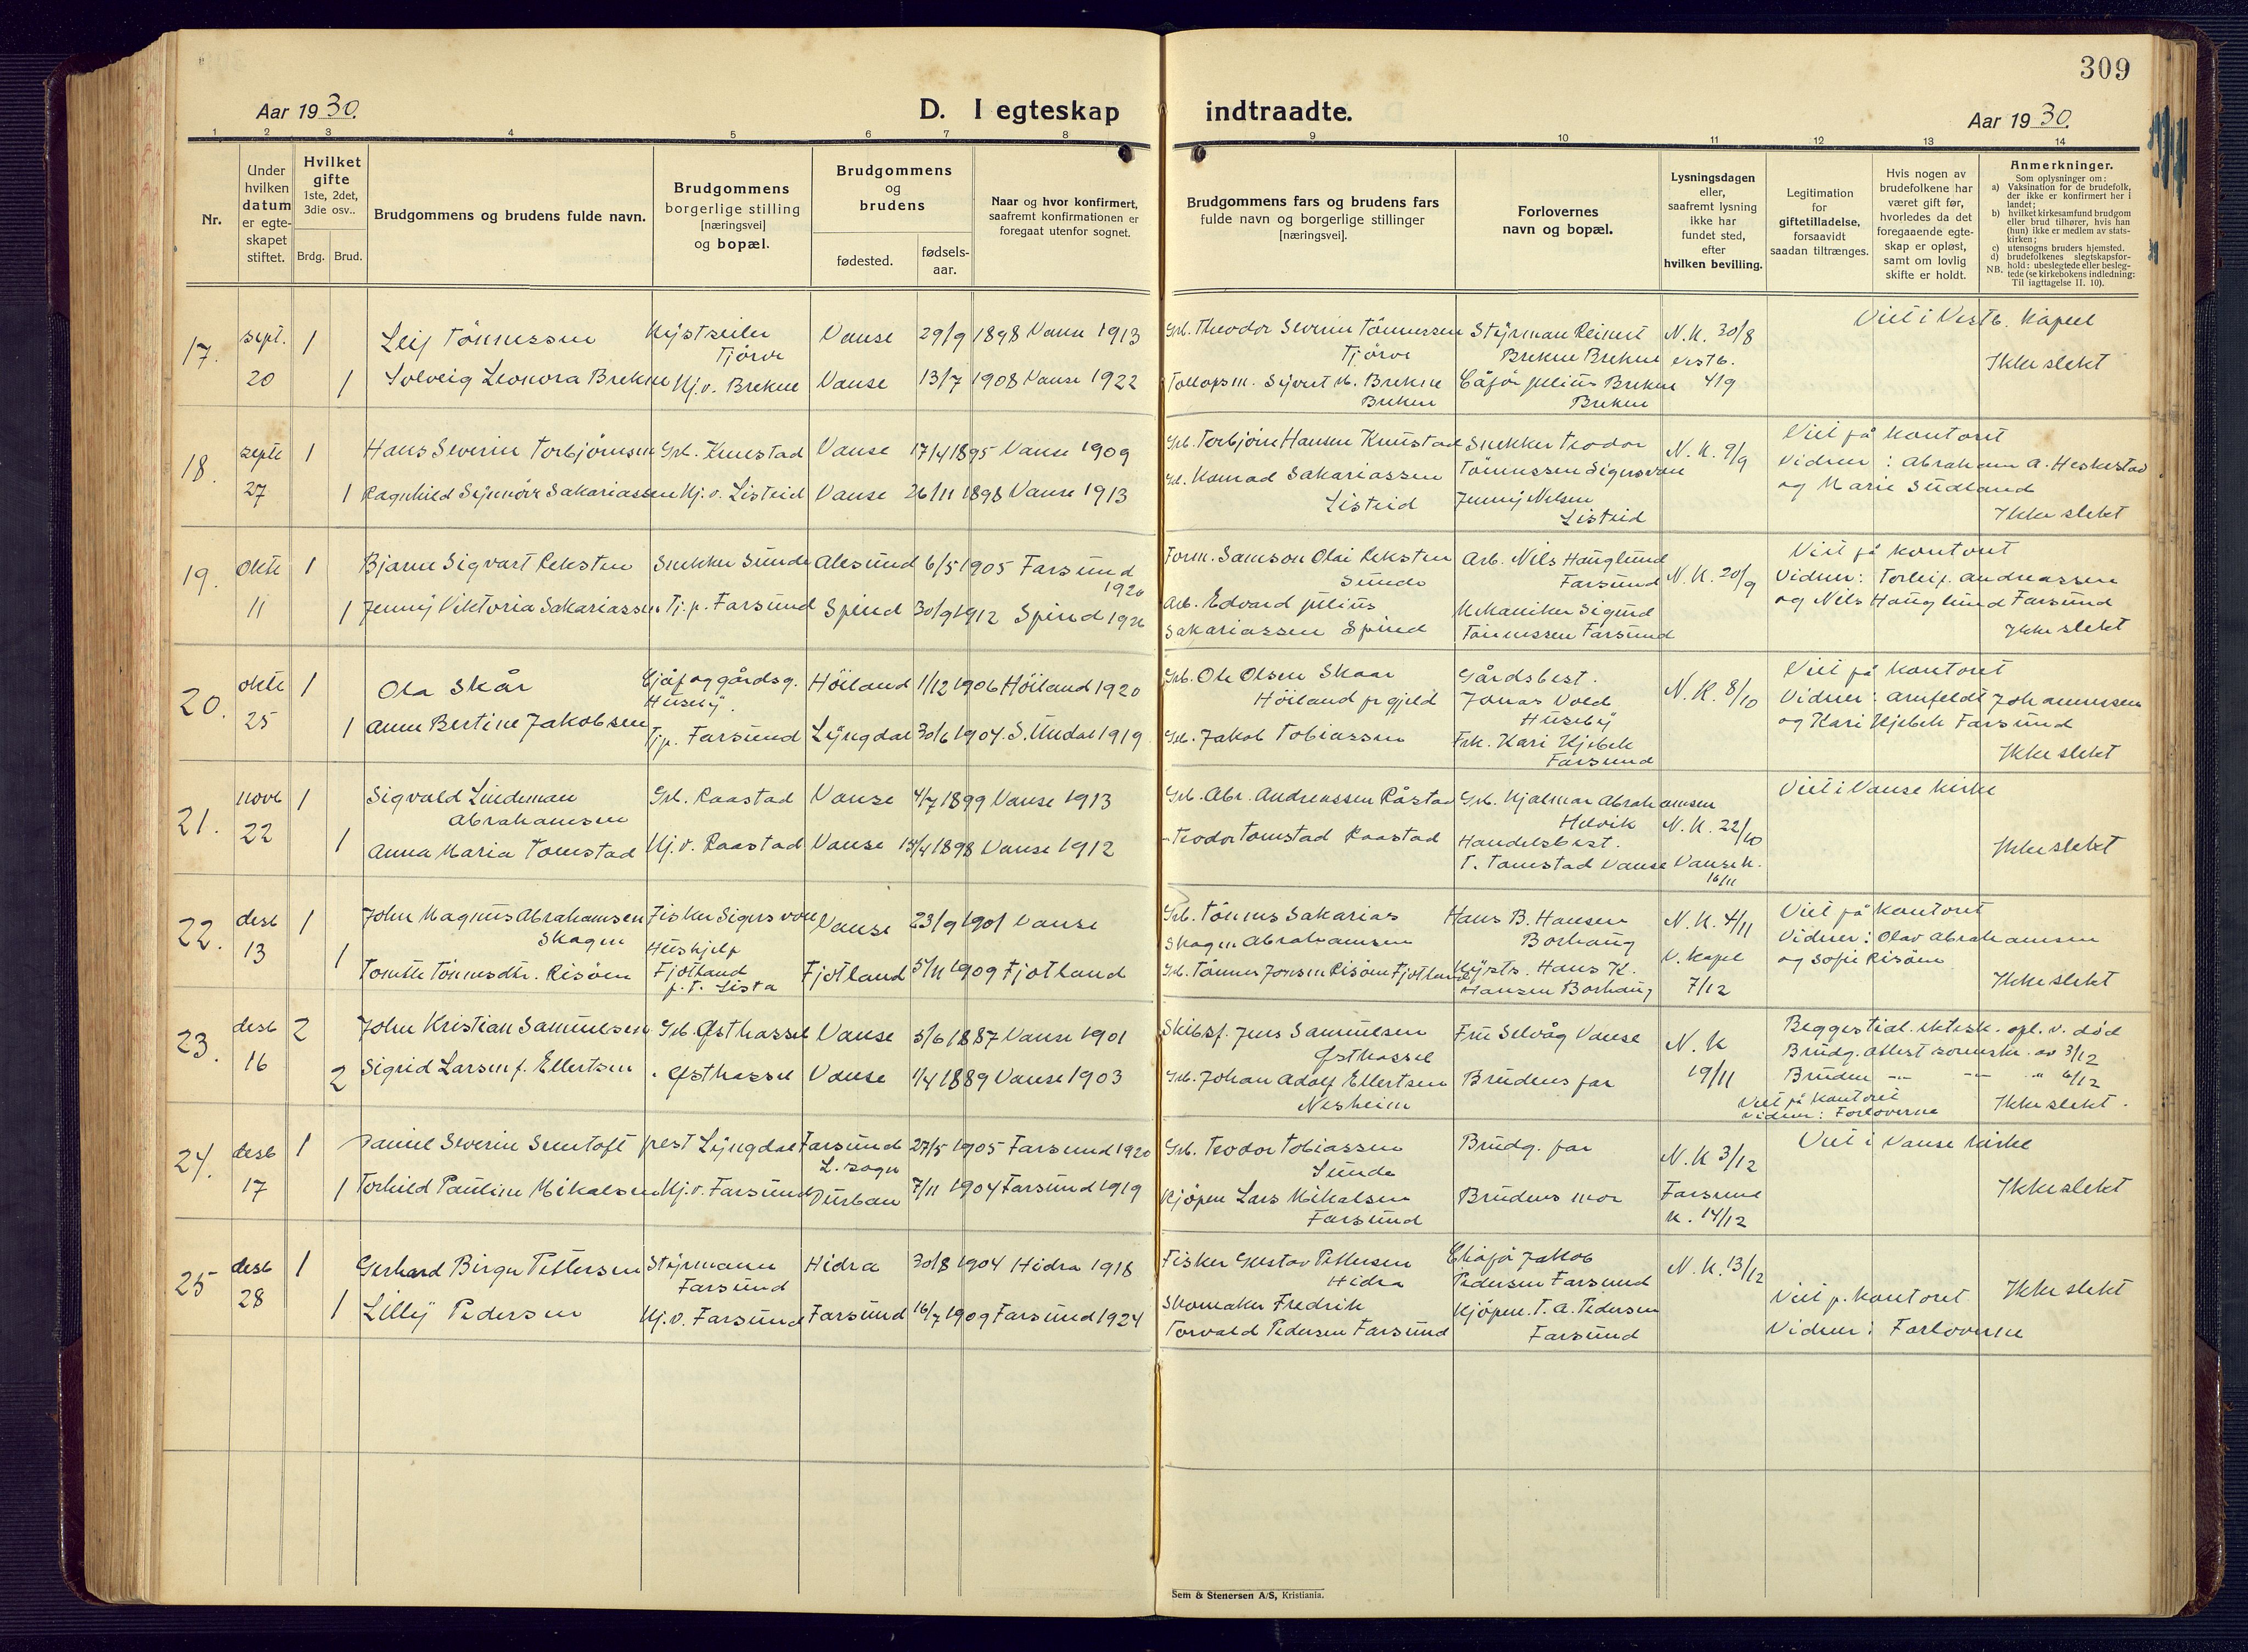 309
Aar 1930.
D. I egteskap
indtraadte.
Aar 1930.
1 2 3 4 5 6 7 8 9 10 11 12 13 14
Nr.
Under hvilken datum er egteskapet stiftet.
Hvilket gifte
1ste, 2det, 3die osv..
Brdg. Brud.
Brudgommens og brudens fulde navn.
Brudgommens borgerlige stilling [næringsvei] og bopæl.
Brudgommens og brudens
fødested.
fødsels-aar.
Naar og hvor konfirmert, saafremt konfirmationen er foregaat utenfor sognet.
Brudgommens fars og brudens fars fulde navn og borgerlige stillinger [næringsvei].
Forlovernes navn og bopæl.
Lysningsdagen eller, saafremt lysning ikke har fundet sted, efter hvilken bevilling.
Legitimation for giftetilladelse, forsaavidt saadan tiltrænges.
Hvis nogen av brudefolkene har været gift før, hvorledes da det foregaaende egteskap er opløst, samt om lovlig skifte er holdt.
Anmerkninger.
Som oplysninger om:
a) Vaksination for de brudefolk, der ikke er konfirmert her i landet;
b) hvilket kirkesamfund brudgom eller brud tilhører, hvis han (hun) ikke er medlem av statskirken;
c) utensogns bruders hjemsted.
d) brudefolkenes slegtskapsforhold: ubeslegtede eller beslegtede (se kirkebokens indledning: Til iagttagelse II. 10).
NB.
17. sept. 20 1 Leif Tönnessen Kystseiler Tjörve Vanse 29/9 1898 Vanse 1913 Grb. Theodor Severin Tönnessen Tjörve Styrman Reinert Brekne Brekne N.K. 30/8 Vestb. 4/9 Viet i Vestb. Kapel
1 Solveig Leonora Brekne Hj.v. Brekne Vanse 13/7 1908 Vanse 1922 Sivert M. Brekne Brekne Julius Brekne Brekne Ikke slekt
18. septb 27 1 Hans Severin Torbjörnsen Grb. Knestad Vanse 17/4 1895 Vanse 1909 Grb. Torbjörn Hansen Knestad Snekker Teodor Tönnessen Sigersvoll N.K. 9/9 Viet på kontoret
Vidner: Abraham A. Heskestad og Marie Sudland
1 Ragnhild Synnöve Sakariassen Hj.v. Listeid Vanse 26/11 1898 Vanse 1913 Grb. Konrad Sakariassen Listeid Jenny Nilsen Listeid Ikke slekt
19. Oktb 11 1 Bjarne Sigvart Reksten Snekker Sunde Alesund 6/5 1905 Farsund 1920 Form. Samson Olai Reksten Sunde Arb. Nils Hauglund Farsund N.K. 20/9 Viet på kontoret
Vidner: Torleif Andreassen og Nils Hauglund Farsund
1 Jenny Viktoria Sakariassen Tj.p. Farsund Spind 30/9 1912 Spind 1926 Arb. Edvard Julius Sakariassen Spind Mekaniker Sigurd Tönnessen Farsund Ikke slekt
20. oktb 25 1 Ola Skår og gårdsg. Huseby. Höiland 1/12 1906 Höiland 1920 Grb. Ole Olsen Skaar Höiland pr gjeld Gårdsbest. Jonas Vold Huseby N.K. 8/10 Viet på kontoret
Vidner: Arnfeldt Johannessen og Kari Kjebek Farsund
1 Anne Bertine Jakobsen Tjp. Farsund Lyngdal 30/6 1904. S. Undal 1919 Grb. Jakob Tobiassen Frk. Kari Kjebek Farsund Ikke slekt
21. novb 22 1 Sigvald Lindeman Abrahamsen Grb. Raastad Vanse 4/7 1899 Vanse 1913 Grb. Abr. Andreassen Råstad Grb. Hjalmar Abrahamsen Helvik N.K. 22/10 Viet i Vanse kirke
1 Anna Maria Tomstad Hj.v. Raastad Vanse 1898 Vanse 1912 - Teodor Tomstad Raastad Handelsbest. T. Tomstad Vanse Vanse k. 16/11 Ikke slekt
22. desb 13 1 John Magnus Abrahamsen Skagen Fisker Sigersvoll Vanse 23/9 1901 Vanse Grb. Tönnes Sakarias Skagen Abrahamsen Hans B. Hansen Borhaug N.K. 4/11 V. Kapel 7/12 Viet på kontoret
Vidner: Olav Abrahamsen og Sofie Risöen
1 Tomtte Tönnesdtr. Risöen Hushjelp Fjotland p.t. Lista Fjotland 5/11 1909 Fjotland Grb. Tönnes Jonsen Risöen Fjotland Kysts. Hans K. Hansen Borhaug Ikke slekt
23. desb 16 2 John Kristian Samuelsen Grb Østhassel Vanse 5/6 1887 Vanse 1901 Skibsf. Jens Samuelsen Østhassel Fru Selvåg Vanse N.K 19/11 Begges tidl. ektesk. opl. v. död
Brudg. attest sorenskr. av 3/12
2 Sigrid Larsen f. Ellertsen " Østhassel Vanse 1/4 1889 Vanse 1903 Grb. Johan Adolf Ellertsen Nesheim Brudens far Bruden -"- -"- " 6/12
Viet på kontoret
Vidner: Forloverne
Ikke slekt.
24. desb 17 1 Daniel Severin Suntoft prest Lyngdal Farsund L. sogn 27/5 1905 Farsund 1920 Grb. Teodor Tobiassen Sunde Brudg. far N.K 3/12 Farsund K. 14/12 Viet i Vanse kirke
1 Torhild Pauline Mikalsen Hj.v. Farsund Durban 7/11 1904 Farsund 1919 Kjöpm Lars Mikalsen Farsund Brudens mor Ikke slekt
25 desb 28 1 Gerhard Birger Pettersen Styrmann Farsund Hidra 30/8 1904 Hidra 1918 Fisker Gustav Pettersen Hidra Jakob Pedersen Farsund N.K. 13/12 Viet p. kontoret
Vidner: Forloverne
1 Lilly Pedersen Hj.v. Farsund Farsund 16/7 1909 Farsund 1924 Skomaker Fredrik Torvald Pedersen Farsund Kjöpm. T. A. Pedersen Farsund Ikke slekt
Sem & Stenersen A/S, Kristiania.